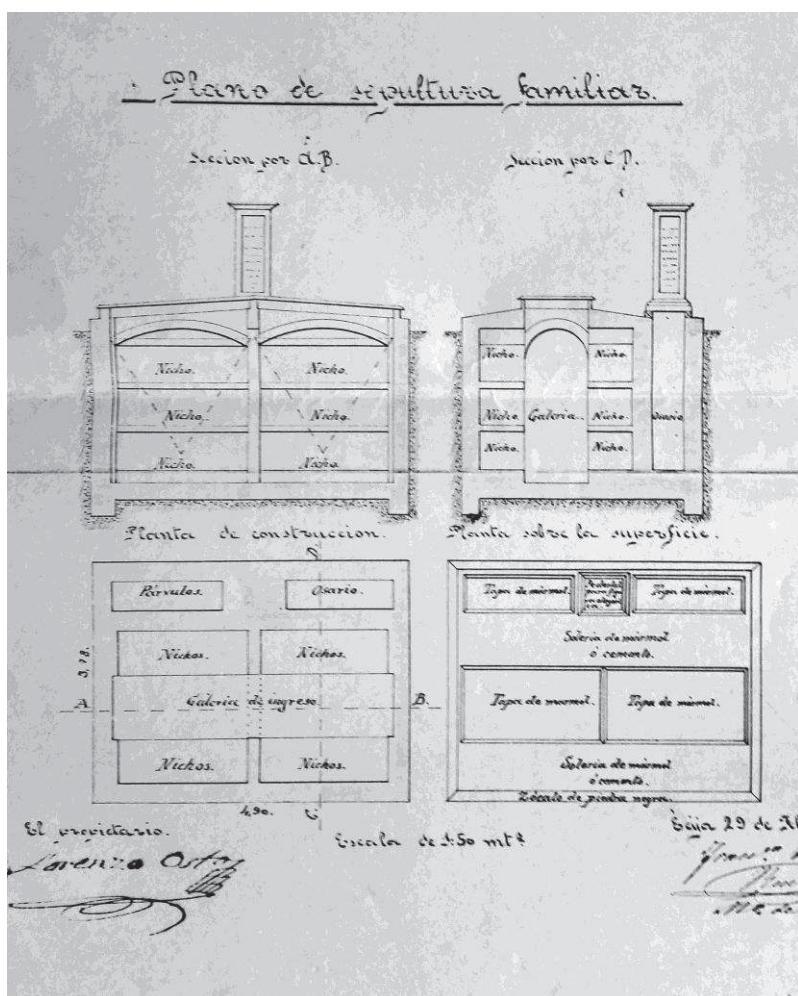 Plano de sepultura familiar.
Seccion por A.B.
Seccion por C.D.
Nicho.
Nicho.
Nicho.
Nicho.
Nicho.
Nicho.
Nicho.
Nicho.
Nicho.
Galeria.
Nicho.
Osario
Nicho.
Nicho.
Planta de construccion.
Planta sobre la superficie.
D
Párvulos.
Osario.
Nichos.
Nichos.
3,78.
A
Galeria de ingreso
B.
Nichos.
Nichos.
4,90.
C
Tapa de mármol.
Pedestal
para
Tapa de mármol.
Soleria de mármol
ó cemento.
Tapa de mármol.
Tapa de mármol.
Soleria de mármol
ó cemento.
Zócalo de piedra negra.
El propietario.
Escala de 1:50 mts
Ecija 29 de
Lorenzo Osta